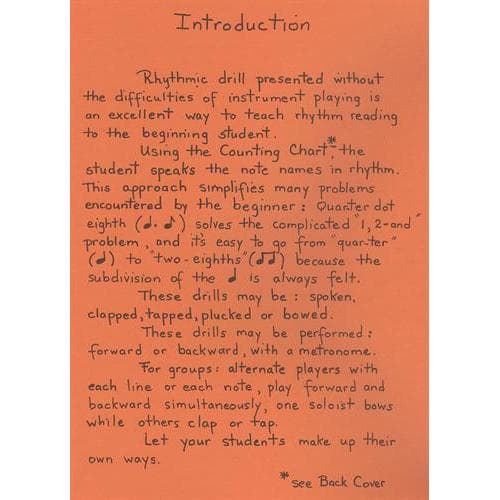 Introduction
Rhythmic drill presented without
the difficulties of instrument playing is
an excellent way to teach rhythm reading
to the beginning student.
Using the Counting Chart*, the
student speaks the note names in rhythm.
This approach simplifies many problems
encountered by the beginner: Quarter dot
eighth (♩. ♪) solves the complicated "1, 2-and"
problem, and it's easy to go from "quar-ter"
(♩) to "two-eighths" (♫) because the
subdivision of the ♩ is always felt.
These drills may be: spoken,
clapped, tapped, plucked or bowed.
These drills may be performed:
forward or backward, with a metronome.
For groups: alternate players with
each line or each note, play forward and
backward simultaneously, one soloist bows
while others clap or tap.
Let your students make up their
own ways.
*see Back Cover